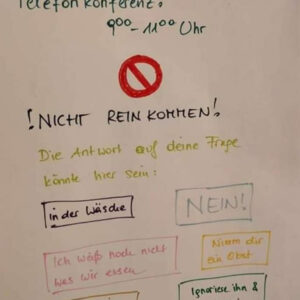 Telefonkonferenz:
9⁰⁰ - 11⁰⁰ Uhr
!NICHT REINKOMMEN!
Die Antwort auf deine Frage
könnte hier sein:
in der Wäsche
NEIN!
Ich weiß noch nicht
was wir essen
Nimm dir
ein Obst
Ignoriere ihn &